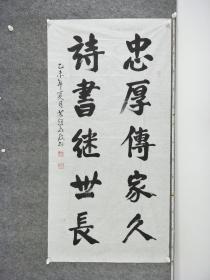 忠厚傳家久
詩書継世長
乙未年夏月